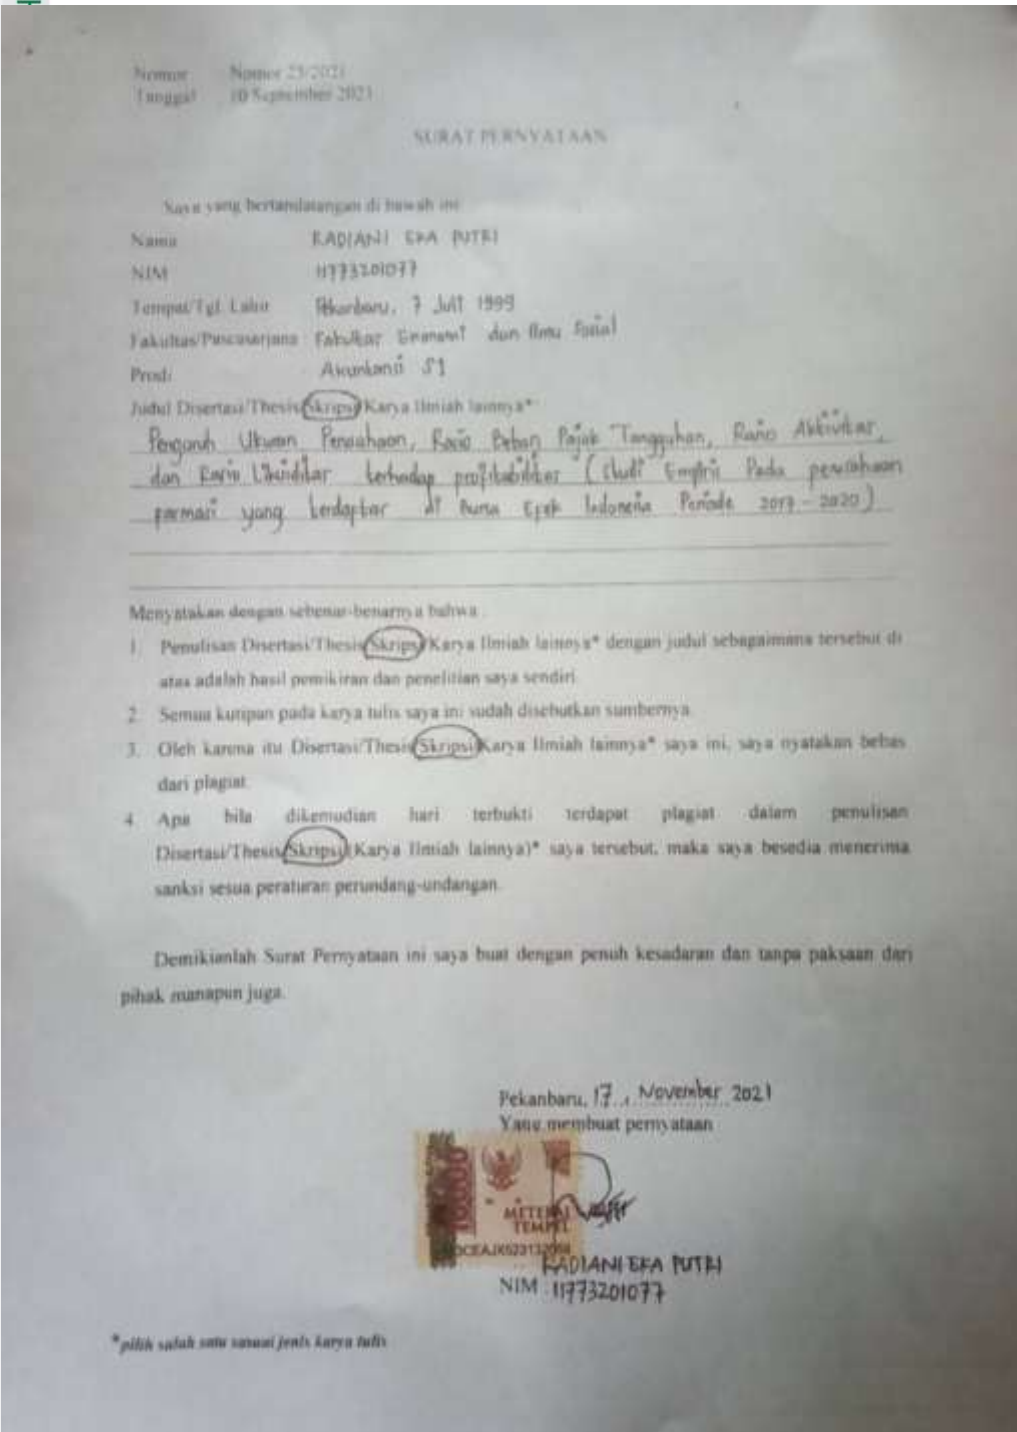 Nomor Nomor 25/2021
Tanggal 10 September 2021
SURAT PERNYATAAN
Saya yang bertandatangan di bawah ini
Nama RADIANI EKA PUTRI
NIM 11773201077
Tempat/Tgl. Lahir Pekanbaru, 7 Juli 1999
Fakultas/Pascasarjana Fakultas Ekonomi dan Ilmu Sosial
Prodi Akuntansi S1
Judul Disertasi/Thesis/Skripsi/Karya Ilmiah lainnya* :
Pengaruh Ukuran Perusahaan, Rasio Beban Pajak Tangguhan, Rasio Aktivitas,
dan Rasio Likuiditas terhadap profitabilitas (Studi Empiris Pada perusahaan
Farmasi yang terdaftar di Bursa Efek Indonesia Periode 2017-2020)
Menyatakan dengan sebenar-benarnya bahwa :
1. Penulisan Disertasi/Thesis/Skripsi/Karya Ilmiah lainnya* dengan judul sebagaimana tersebut di
atas adalah hasil pemikiran dan penelitian saya sendiri.
2. Semua kutipan pada karya tulis saya ini sudah disebutkan sumbernya.
3. Oleh karena itu Disertasi/Thesis/Skripsi/Karya Ilmiah lainnya* saya ini, saya nyatakan bebas
dari plagiat.
4. Apa bila dikemudian hari terbukti terdapat plagiat dalam penulisan
Disertasi/Thesis/Skripsi/(Karya Ilmiah lainnya)* saya tersebut, maka saya besedia menerima
sanksi sesua peraturan perundang-undangan.
Demikianlah Surat Pernyataan ini saya buat dengan penuh kesadaran dan tanpa paksaan dari
pihak manapun juga.
Pekanbaru, 17, November 2021
Yang membuat pernyataan
10000
METERAI
TEMPEL
RADIANI EKA PUTRI
NIM : 11773201077
*pilih salah satu sasuai jenis karya tulis